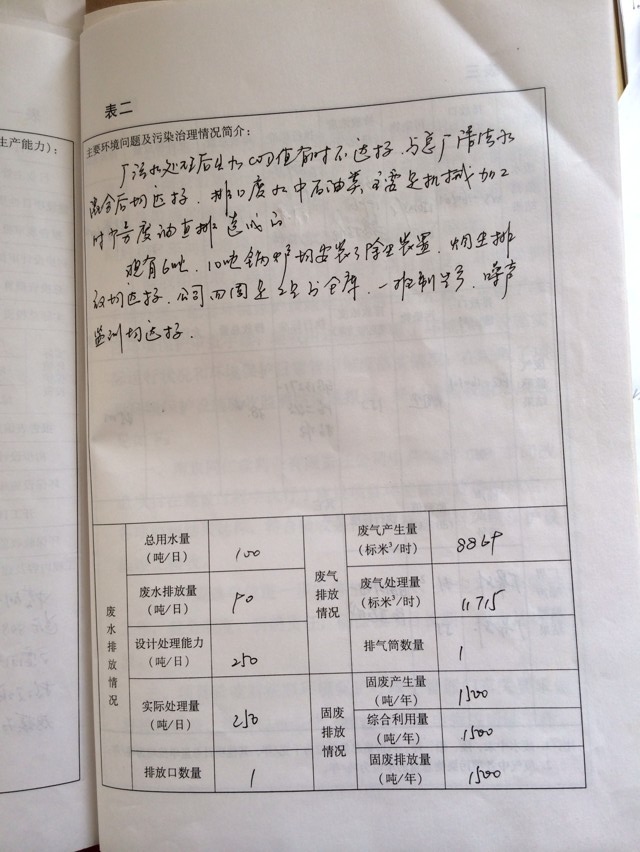 表二
生产能力）：
主要环境问题及污染治理情况简介：
厂污水处理后出水COD值有时不达标，与总厂清洁水
混合后均达标，排口废水中石油类主要是机械加工
时少量废油直排造成的
现有6吨、10吨锅炉均安装了除尘装置，烟尘排
放均达标，公司四周是仓库，一班制生产，噪声
监测均达标．
废水排放情况
总用水量（吨/日） 100
废水排放量（吨/日） 90
设计处理能力（吨/日） 250
实际处理量（吨/日） 250
排放口数量 1
废气排放情况
废气产生量（标米³/时）
废气处理量（标米³/时） 11715
排气筒数量 1
固废排放情况
固废产生量（吨/年） 1500
综合利用量（吨/年） 1500
固废排放量（吨/年） 1500